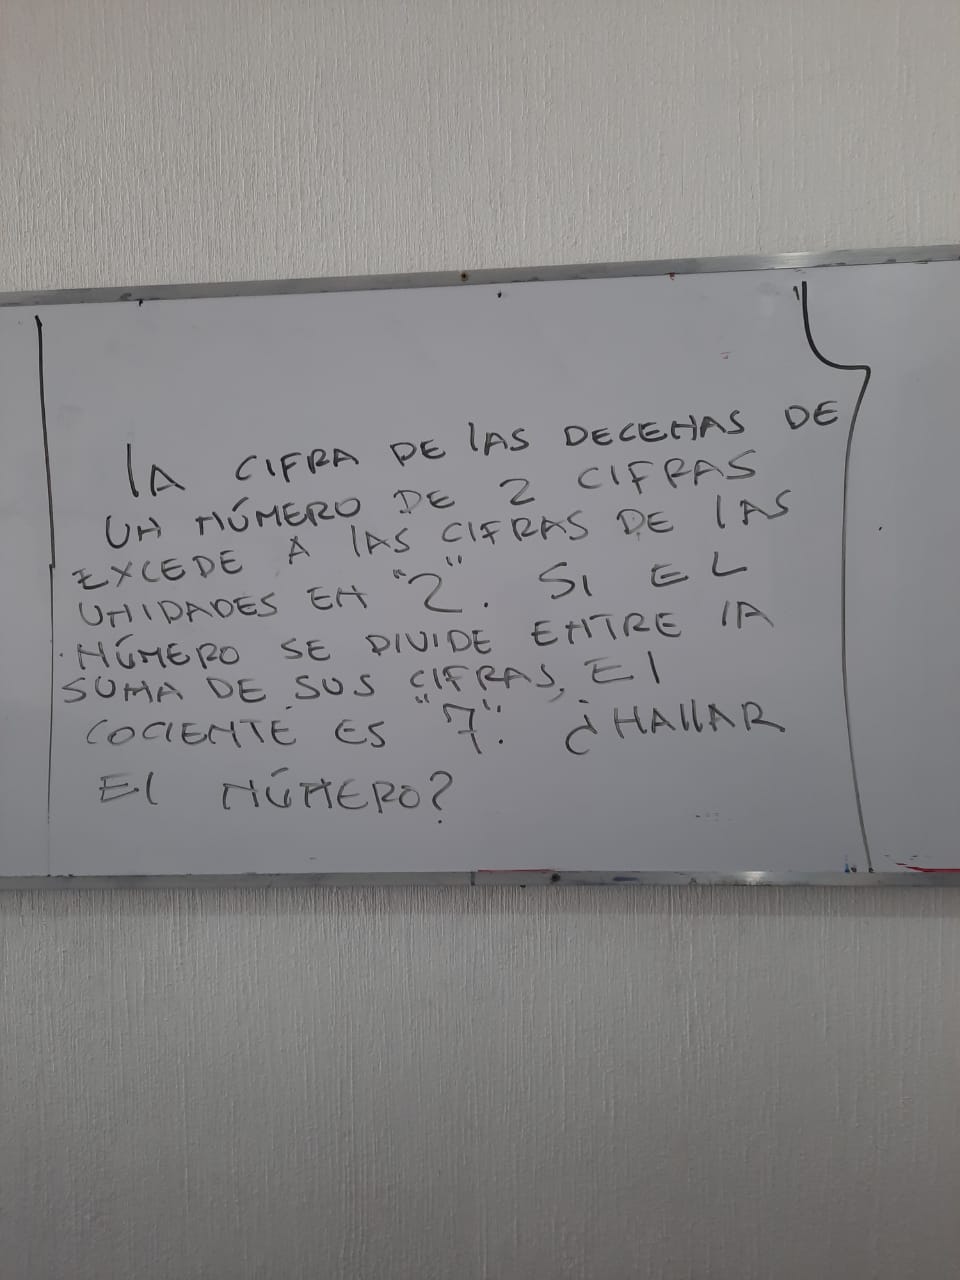 lA CIFRA DE lAS DECENAS DE
UN NÚMERO DE 2 CIFRAS
EXCEDE A lAS CIFRAS DE lAS
UNIDADES EN "2". SI EL
NÚMERO SE DIVIDE ENTRE lA
SUMA DE SUS CIFRAS, El
COCIENTE ES "7". ¿HAllAR
El NÚMERO?